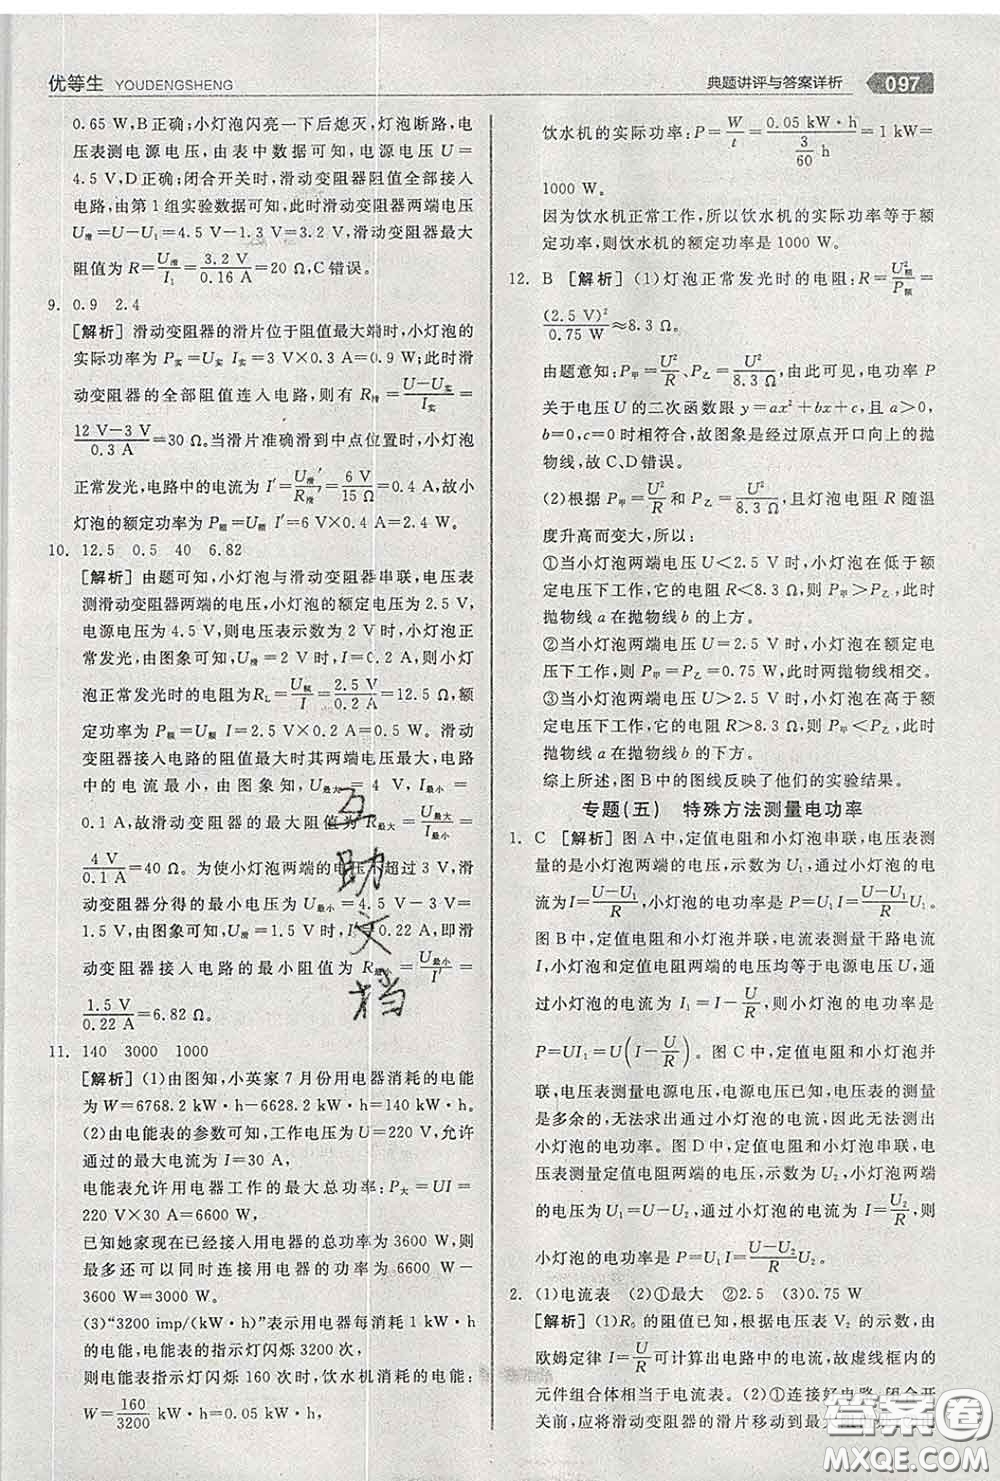 优等生 YOUDENGSHENG
典题讲评与答案详析 097
0.65 W,B正确;小灯泡闪亮一下后熄灭,灯泡断路,电
压表测电源电压,由表中数据可知,电源电压 U=
4.5 V,D正确;闭合开关时,滑动变阻器阻值全部接入
电路,由第1组实验数据可知,此时滑动变阻器两端电压
U滑=U-U₁=4.5 V-1.3 V=3.2 V,滑动变阻器最大
阻值为 R=U滑/I₁=3.2 V/0.16 A=20 Ω,C错误。
9. 0.9 2.4
[解析] 滑动变阻器的滑片位于阻值最大端时,小灯泡的
实际功率为 P实=U实 I实=3 V×0.3 A=0.9 W;此时滑
动变阻器的全部阻值连入电路,则有 R滑=(U-U实)/I实=
(12 V-3 V)/0.3 A=30 Ω。当滑片准确滑到中点位置时,小灯泡
正常发光,电路中的电流为 I′=U滑′/R滑′=6 V/15 Ω=0.4 A,故小
灯泡的额定功率为 P额=U额 I′=6 V×0.4 A=2.4 W。
10. 12.5 0.5 40 6.82
[解析] 由题可知,小灯泡与滑动变阻器串联,电压表
测滑动变阻器两端的电压,小灯泡的额定电压为2.5 V,
电源电压为4.5 V,则电压表示数为2 V时,小灯泡正
常发光,由图象可知,U滑=2 V时,I=0.2 A,则小灯
泡正常发光时的电阻为 R_L=U额/I=2.5 V/0.2 A=12.5 Ω,额
定功率为 P额=U额 I=2.5 V×0.2 A=0.5 W。滑动
变阻器接入电路的阻值最大时其两端电压最大,电路
中的电流最小,由图象知,U最大=4 V,I最小=
0.1 A,故滑动变阻器的最大阻值为 R最大=U最大/I最小=
4 V/0.1 A=40 Ω。为使小灯泡两端的电压不超过3 V,滑
动变阻器分得的最小电压为 U最小=4.5 V-3 V=
1.5 V,由图象可知,U滑=1.5 V时,I=0.22 A,即滑
动变阻器接入电路的最小阻值为 R最小=U最小/I′=
1.5 V/0.22 A=6.82 Ω。
11. 140 3000 1000
[解析] (1)由图知,小英家7月份用电器消耗的电能
为 W=6768.2 kW·h-6628.2 kW·h=140 kW·h。
(2)由电能表的参数可知,工作电压为 U=220 V,允许
通过的最大电流为 I=30 A,
电能表允许用电器工作的最大总功率:P大=UI=
220 V×30 A=6600 W,
已知她家现在已经接入用电器的总功率为3600 W,则
最多还可以同时连接用电器的功率为 6600 W-
3600 W=3000 W;
(3)“3200 imp/(kW·h)”表示用电器每消耗1 kW·h
的电能,电能表的指示灯闪烁3200次,
则电能表指示灯闪烁160次时,饮水机消耗的电能:
W=160/3200 kW·h=0.05 kW·h,
饮水机的实际功率:P=W/t=0.05 kW·h/(3/60 h)=1 kW=
1000 W。
因为饮水机正常工作,所以饮水机的实际功率等于额
定功率,则饮水机的额定功率是1000 W。
12. B [解析] (1)灯泡正常发光时的电阻:R=U²额/P额=
(2.5 V)²/0.75 W≈8.3 Ω。
由题意知:P甲=U²/R、P乙=U²/8.3 Ω,由此可见,电功率 P
关于电压 U 的二次函数跟 y=ax²+bx+c,且 a>0,
b=0,c=0时相符合,故图象是经过原点开口向上的抛
物线,故C、D错误。
(2)根据 P甲=U²/R 和 P乙=U²/8.3 Ω,且灯泡电阻 R 随温
度升高而变大,所以:
①当小灯泡两端电压 U<2.5 V时,小灯泡在低于额
定电压下工作,它的电阻 R<8.3 Ω,则 P甲>P乙,此时
抛物线 a 在抛物线 b 的上方。
②当小灯泡两端电压 U=2.5 V时,小灯泡在额定电
压下工作,则 P甲=P乙=0.75 W,此时两抛物线相交。
③当小灯泡两端电压 U>2.5 V时,小灯泡在高于额
定电压下工作,它的电阻 R>8.3 Ω,则 P甲<P乙,此时
抛物线 a 在抛物线 b 的下方。
综上所述,图B中的图线反映了他们的实验结果。
专题(五) 特殊方法测量电功率
1. C [解析] 图A中,定值电阻和小灯泡串联,电压表测
量的是小灯泡两端的电压,示数为 U₁,通过小灯泡的电
流为 I=(U-U₁)/R,小灯泡的功率 P=U₁I=(U-U₁)/R U₁。
图B中,定值电阻和小灯泡并联,电流表测量干路电流
I,小灯泡和定值电阻两端的电压均等于电源电压 U,通
过小灯泡的电流为 I₁=I-U/R,小灯泡的电功率
P=UI₁=U(I-U/R)。图C中,定值电阻和小灯泡并
联,电压表测量电源电压,电源电压已知,电压表的测量
是多余的,无法求出通过小灯泡的电流,因此无法测出
小灯泡的电功率。图D中,定值电阻和小灯泡串联,电
压表测量定值电阻两端的电压,示数为 U₂,小灯泡两端
的电压为 U₁=U-U₂,通过小灯泡的电流 I=U₂/R,则
小灯泡的电功率 P=U₁I=(U-U₂)/R U₂。
2. (1)电流表 (2)①最大 ②2.5 ③0.75 W
[解析] (1)R₀ 的阻值已知,根据电压表 V₂ 的示数,由
欧姆定律 I=U/R 可计算出电路中的电流,故虚线框内的
元件组合体相当于电流表。(2)①连接好电路,闭合开
关前,应将滑动变阻器的滑片移动到最大
互助文档
答案圈
MXQE.COM